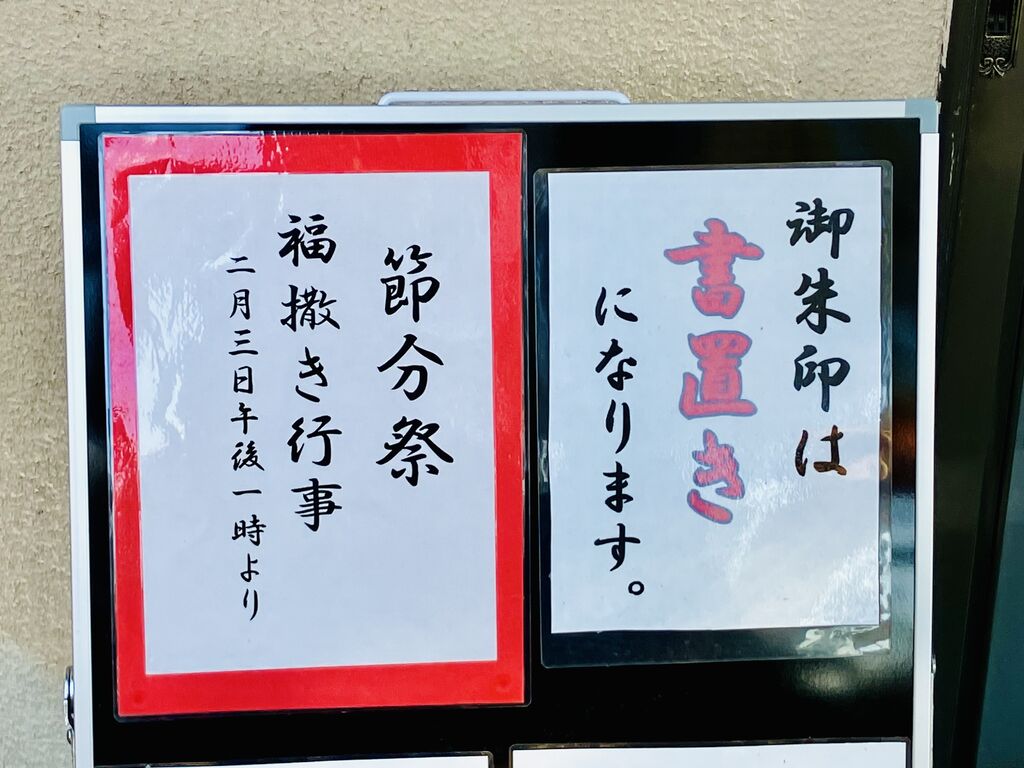 御朱印は
書置き
になります。
節分祭
福撒き行事
二月三日午後一時より